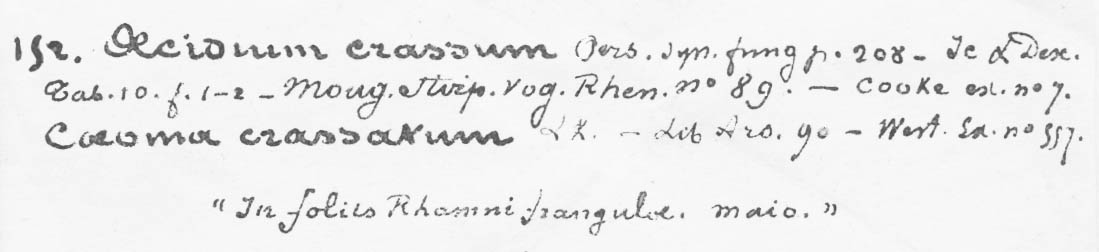 152. Æcidium crassum Pers. Syn. fung p. 208 - Ic & Desc.
Tab. 10. f. 1-2 - Moug. Stirp. Vog. Rhen. no 89. — Cooke ex. no 7.
Cæoma crassatum LK. - Lib Ard. 90 - West. Ex. no 557.
"In foliis Rhamni frangulæ. maio."